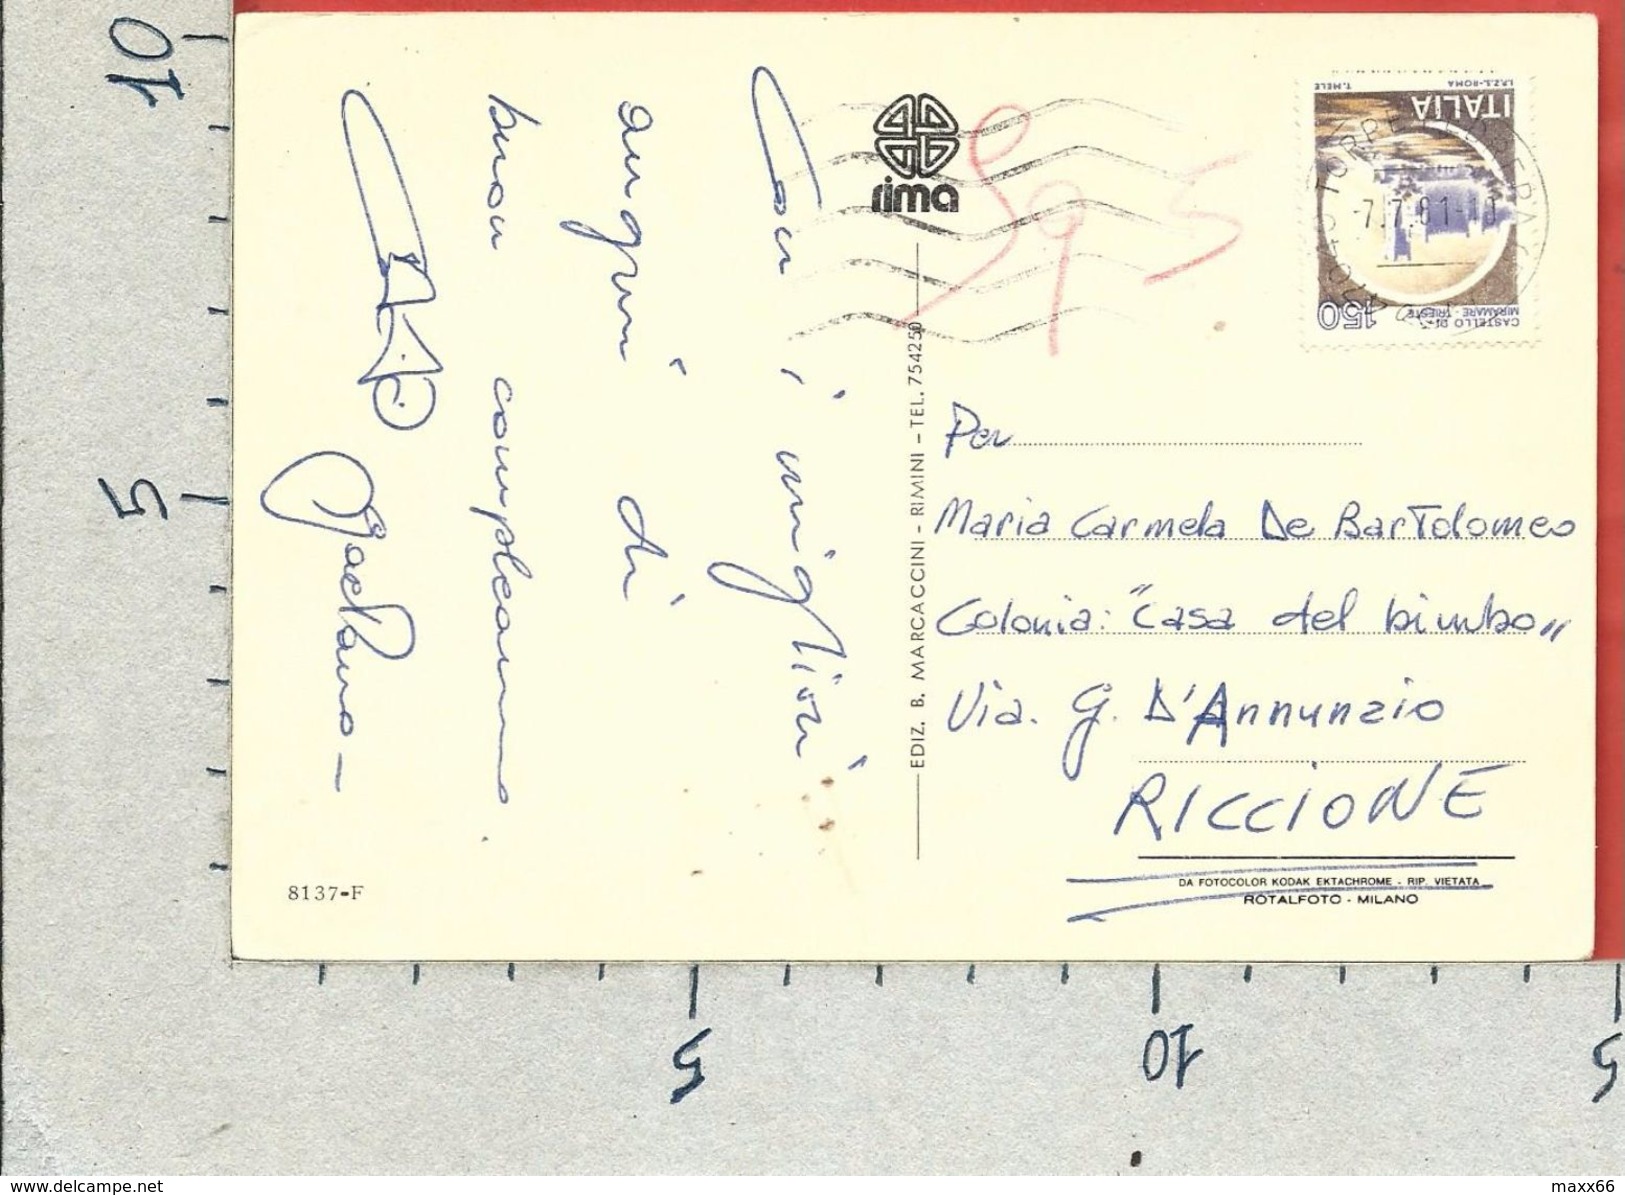 Con i migliori
auguri di
buon compleanno
CIAO
Gaetano -
rima
EDIZ. B. MARCACCINI - RIMINI - TEL. 754250
ITALIA
T. MELE
I.P.Z.S.-ROMA
150
CASTELLO DI
MIRAMARE - TRIESTE
7.7.81-11
Per
Maria Carmela De Bartolomeo
Colonia: "Casa del bimbo"
Via. G. D'Annunzio
RICCIONE
DA FOTOCOLOR KODAK EKTACHROME - RIP. VIETATA
ROTALFOTO - MILANO
8137-F
10
5
5
10
5
www.delcampe.net
maxx66